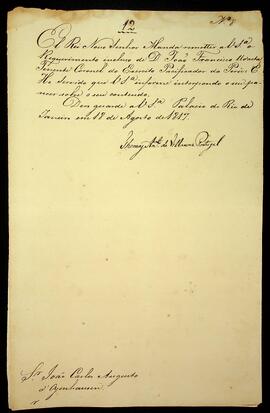 12
N.º
El Rei Nosso Senhor Manda remetter a V. S.ª o
Requerimento incluso de D. João Francisco
Tenente Coronel do Exercito Pacificador do Perú. E
He Servido que V. S.ª informe interpondo o seu pa-
recer sobre o seu contendo.
Deos guarde a V. S.ª Palacio do Rio de
Janeiro em 18 de Agosto de 1817.
Thomaz Ant.º de Villanova Portugal
Sr. João Carlos Augusto
d'Oyenhausen